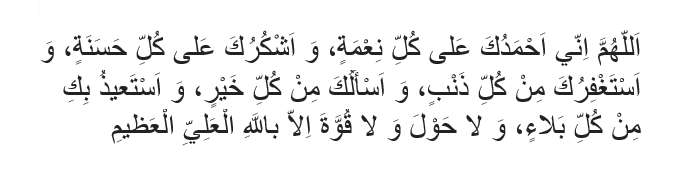 اَللّهُمَّ اِنّي اَحْمَدُكَ عَلى كُلِّ نِعْمَةٍ، وَ اَشْكُرُكَ عَلى كُلِّ حَسَنَةٍ، وَ
اَسْتَغْفِرُكَ مِنْ كُلِّ ذَنْبٍ، وَ اَسْأَلُكَ مِنْ كُلِّ خَيْرٍ، وَ اَسْتَعيذُ بِكِ
مِنْ كُلِّ بَلاءٍ، وَ لا حَوْلَ وَ لا قُوَّةَ اِلاّ باللَّهِ الْعَلِيِّ الْعَظيمِ